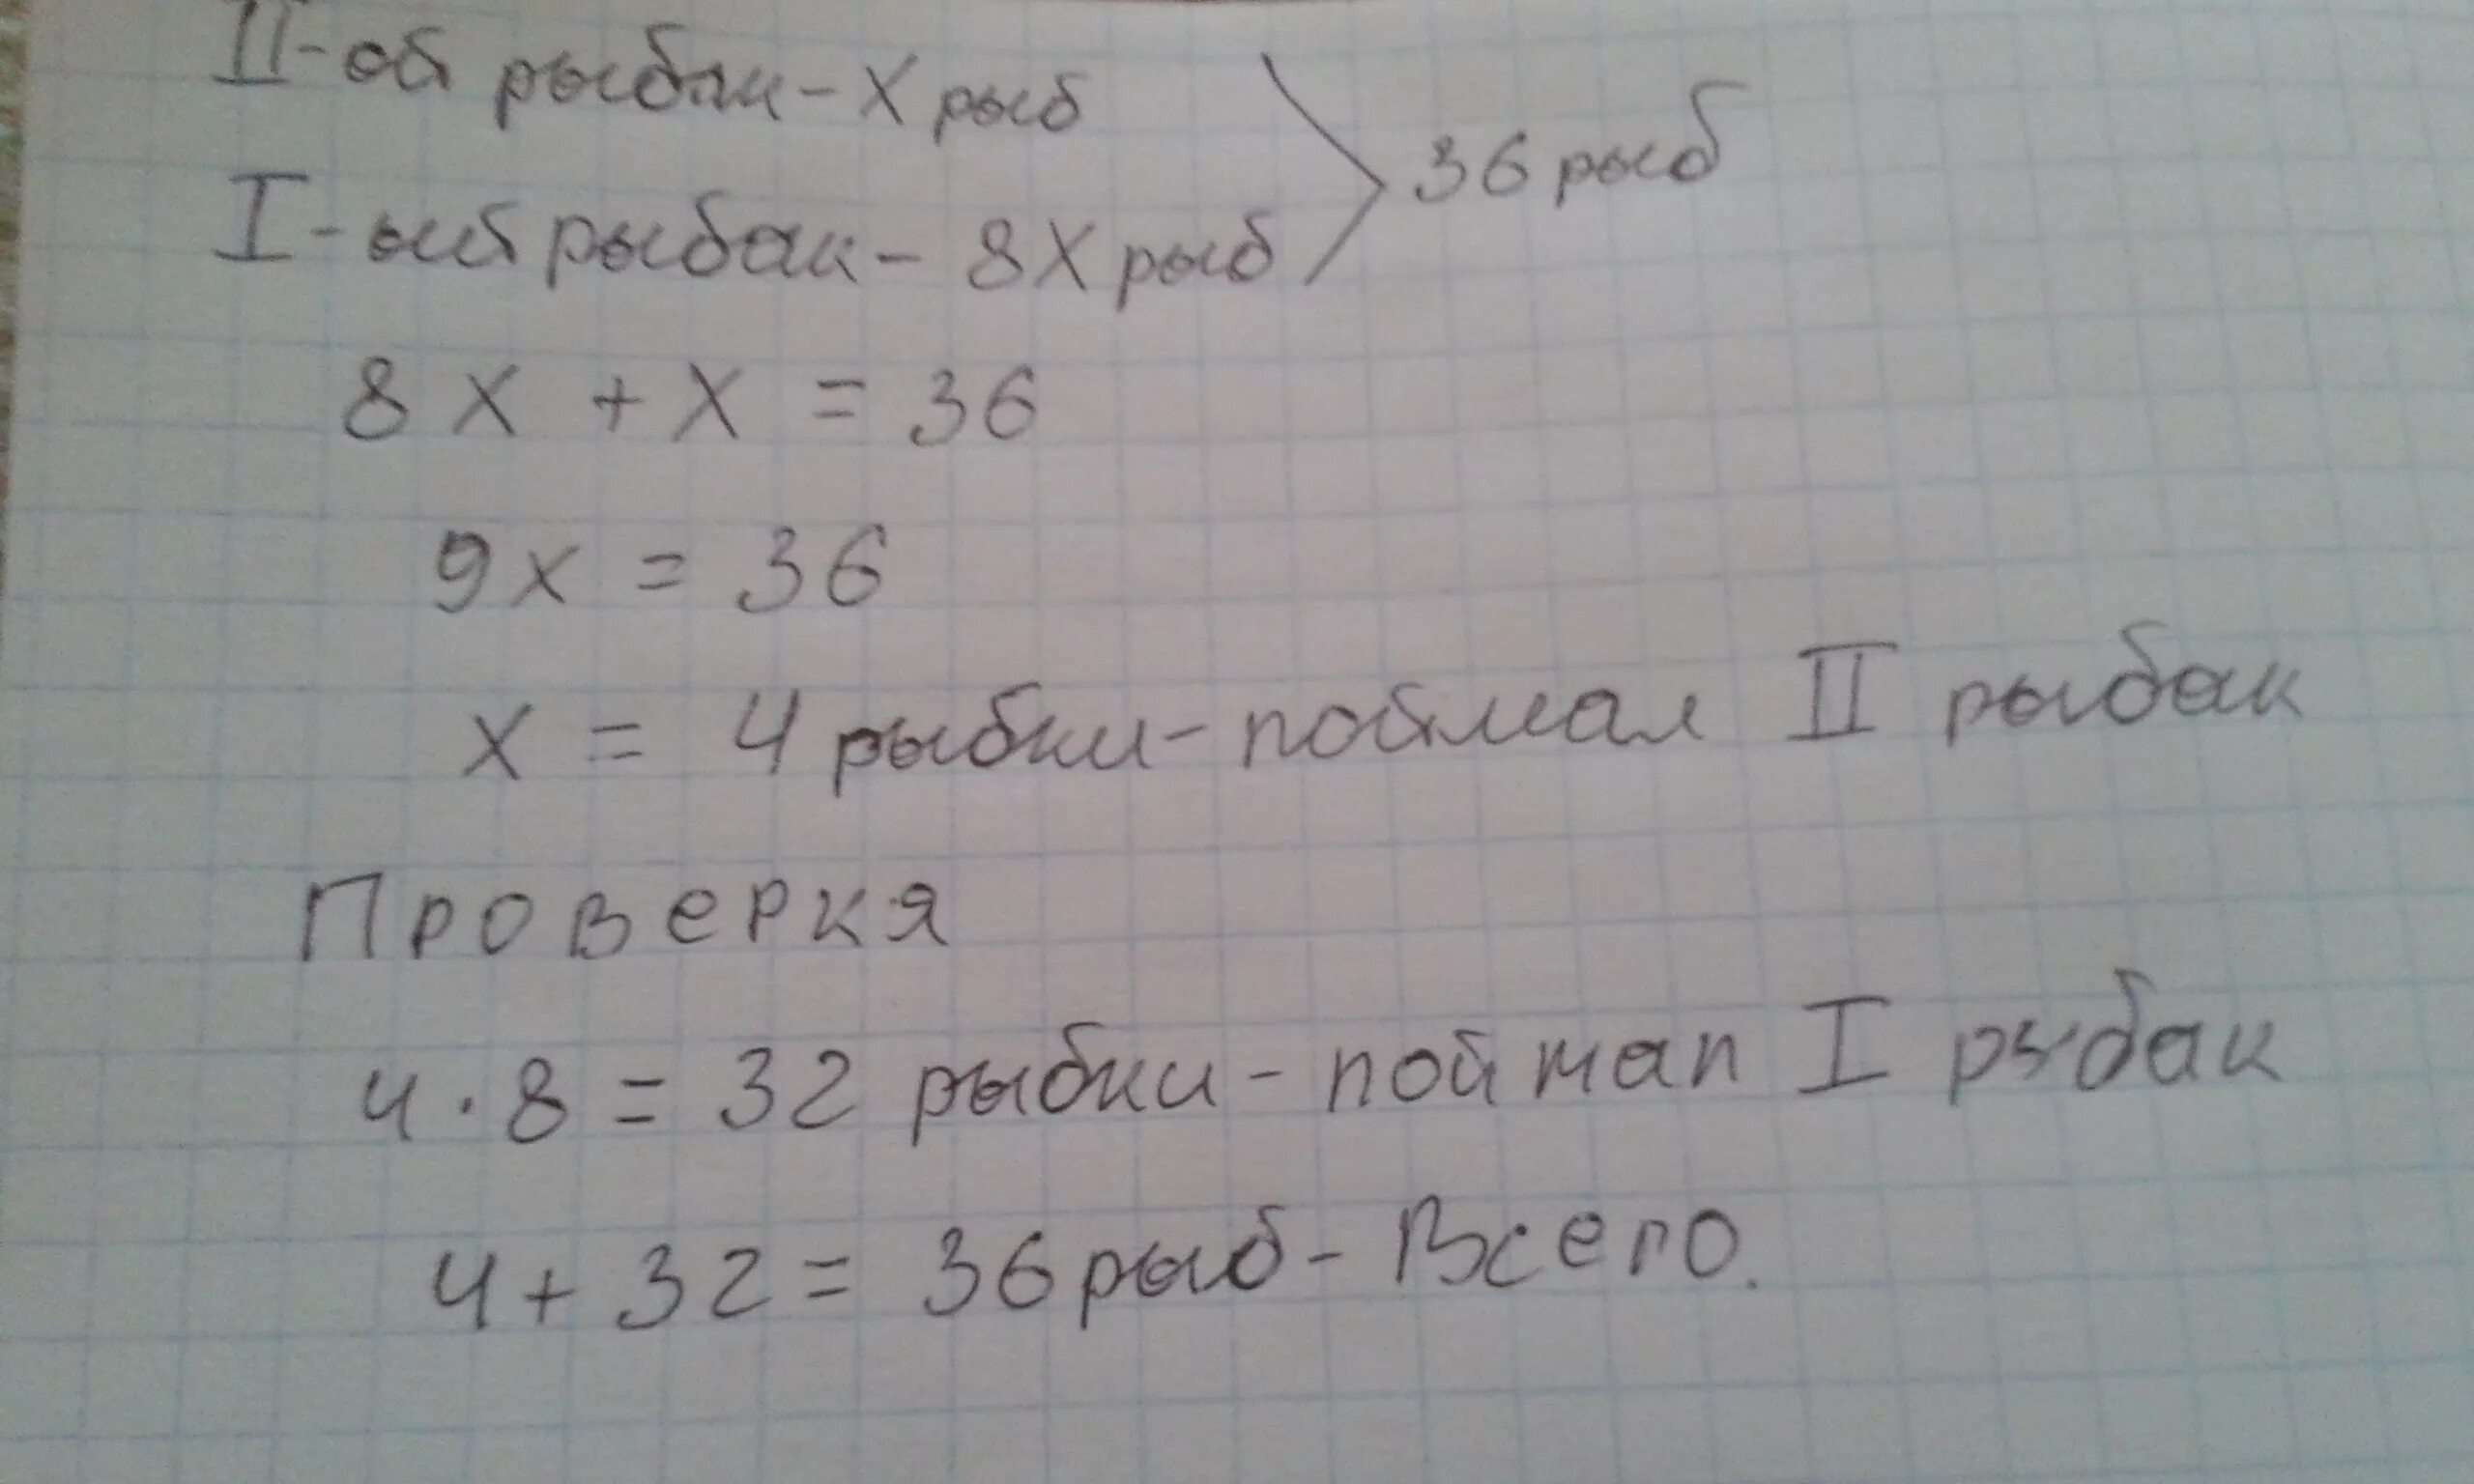 II-ой рыбак - X рыб
I-ый рыбак - 8X рыб
36 рыб
8X + X = 36
9x = 36
x = 4 рыбки - поймал II рыбак
Проверкя
4 · 8 = 32 рыбки - поймал I рыбак
4 + 32 = 36 рыб - Всего.